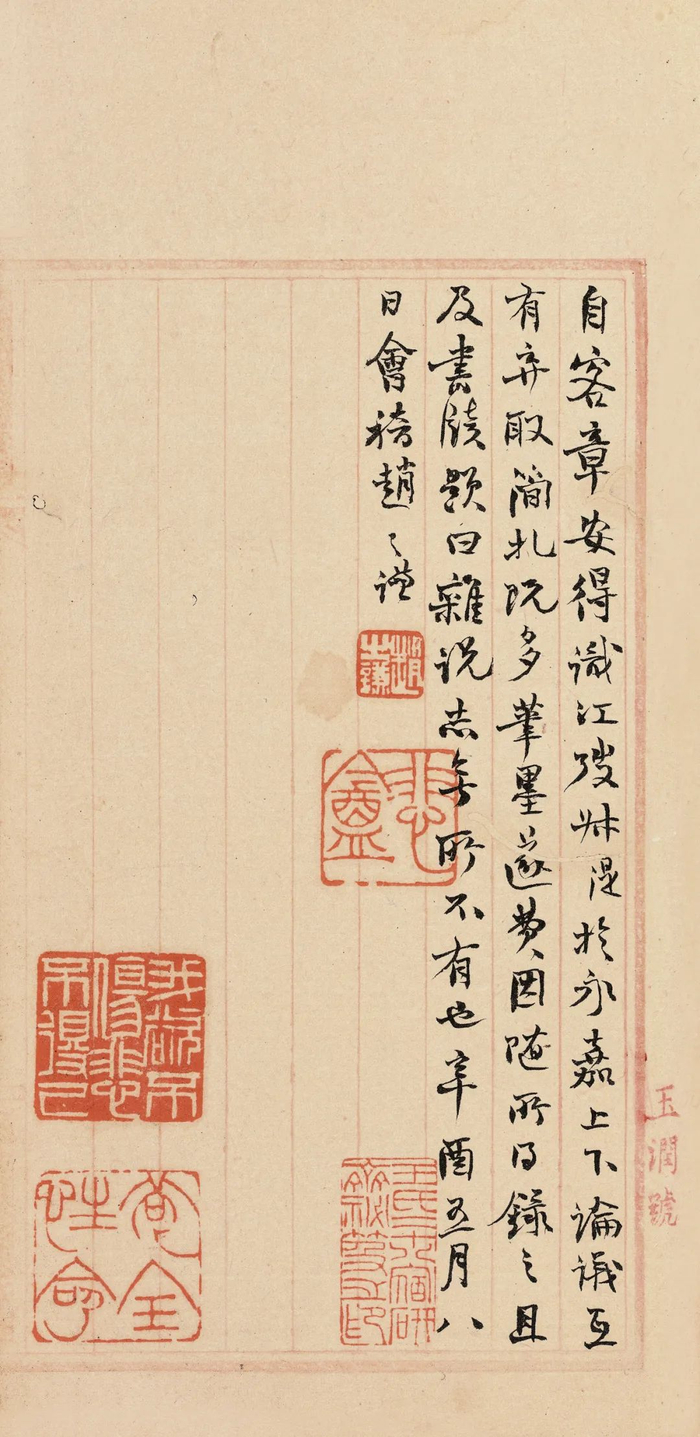 自客章安得識江弢叔湜於永嘉上下論議互
有弃取簡札既多筆墨遂費因隨所得錄之且
及書牘題曰雜說志無所不有也辛酉五月八
日會稽趙之謙
趙之謙
悲盦
我欲不傷悲不得已
苟全性命
玉潤號